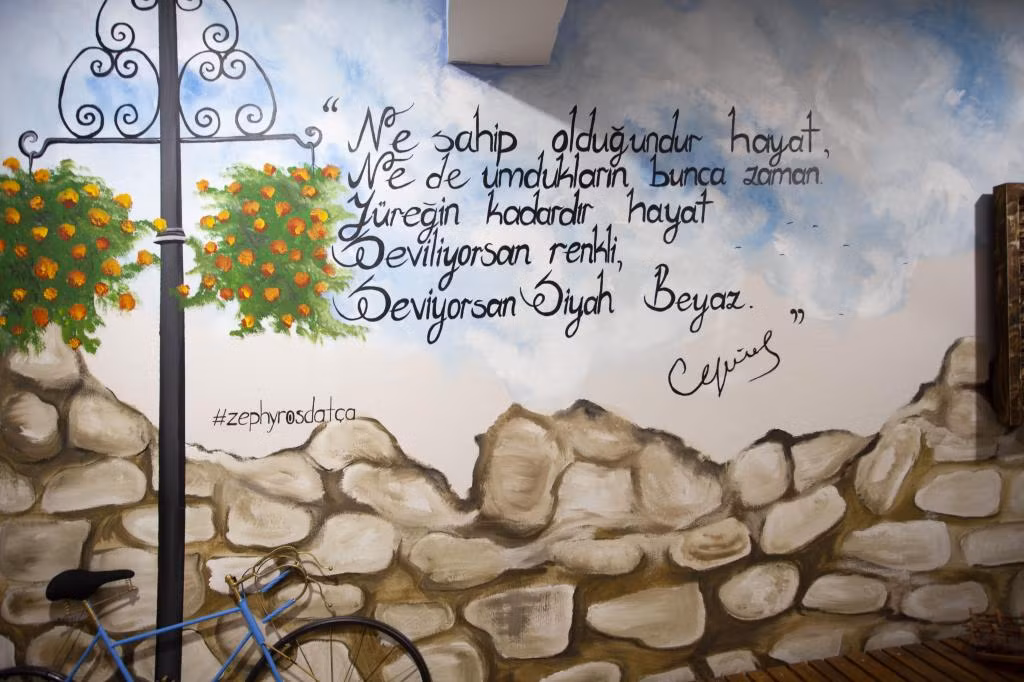 “ Ne sahip olduğundur hayat,
Ne de umdukların bunca zaman.
Yüreğin kadardır hayat
Seviliyorsan renkli,
Seviyorsan Siyah Beyaz. ”
#zephyrosdatça